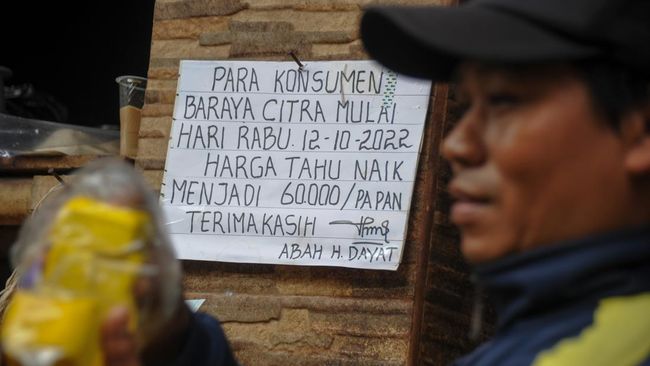 PARA KONSUMEN
BARAYA CITRA MULAI
HARI RABU. 12-10-2022
HARGA TAHU NAIK
MENJADI 60.000/PAPAN
TERIMAKASIH
ABAH H. DAYAT